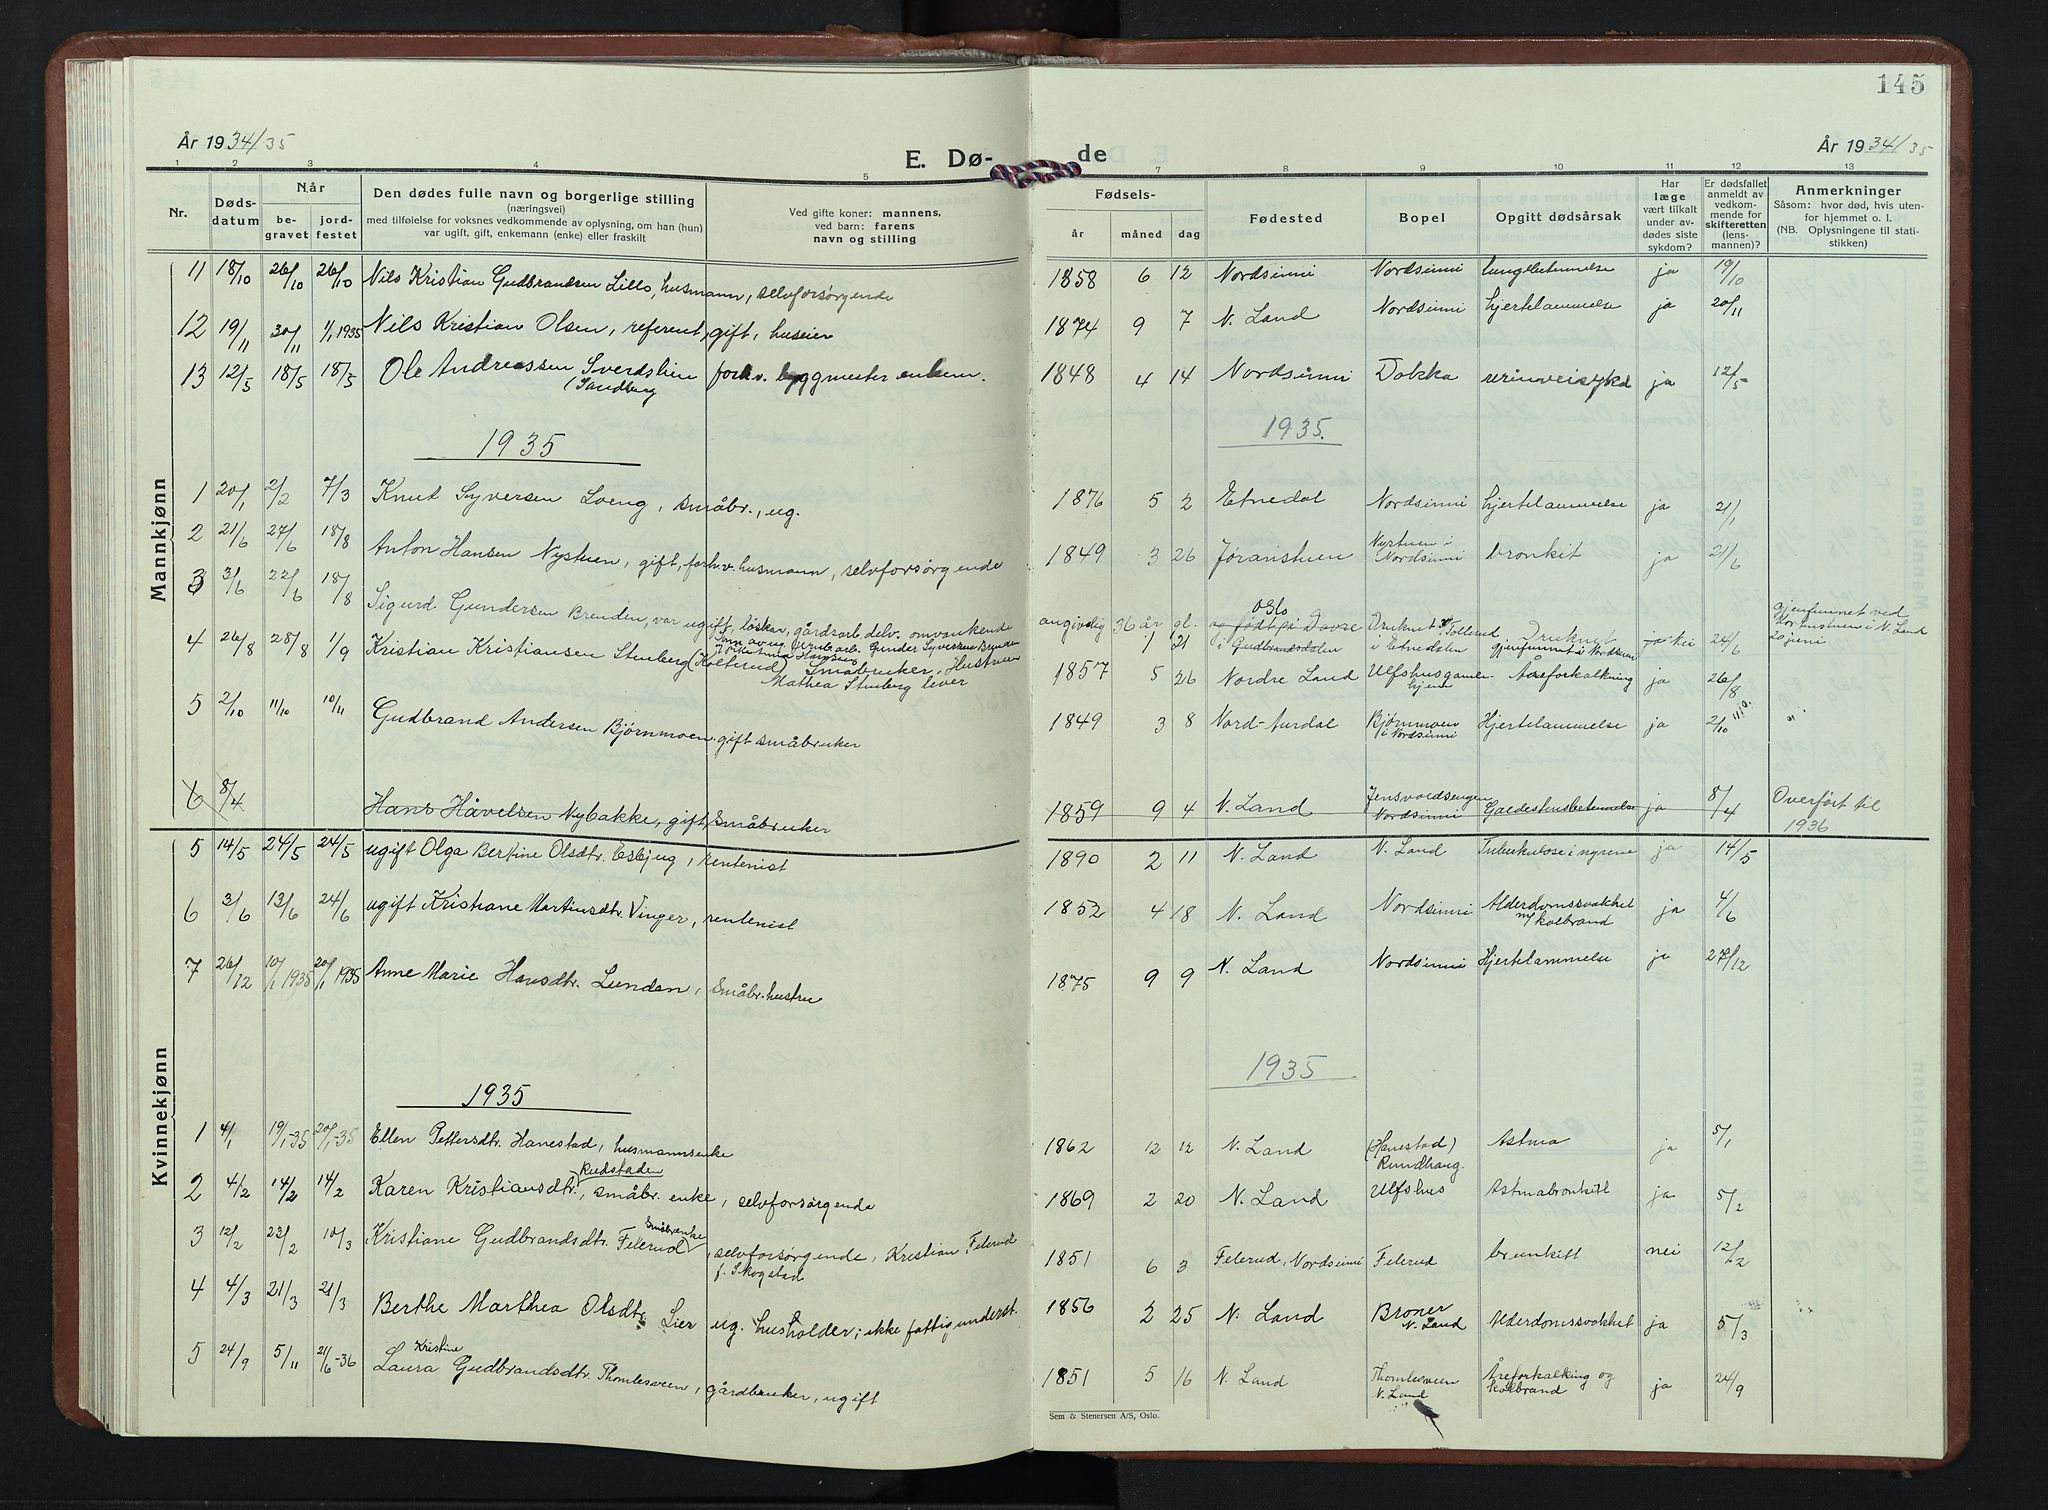 145
År 1934/35
E. Dø- de
År 1934/35
1 2 3 4 5 7 8 9 10 11 12 13
Nr.
Døds-
datum
Når
be-
gravet
jord-
festet
Den dødes fulle navn og borgerlige stilling
(næringsvei)
med tilføielse for voksnes vedkommende av oplysning, om han (hun)
var ugift, gift, enkemann (enke) eller fraskilt
Ved gifte koner: mannens,
ved barn: farens
navn og stilling
Fødsels-
år måned dag
Fødested
Bopel
Opgitt dødsårsak
Har
læge
vært tilkalt
under av-
dødes siste
sykdom?
Er dødsfallet
anmeldt av
vedkom-
mende for
skifteretten
(lens-
mannen)?
Anmerkninger
Såsom: hvor død, hvis uten-
for hjemmet o. l.
(NB. Oplysningene til stati-
stikken)
Mannkjønn
11 18/10 26/10 26/10 Nils Kristian Gudbrandsen Lillo, husmann, selvforsørgende 1858 6 12 Nordsinni Nordsinni lungebetennelse ja 19/10
12 19/11 30/11 1/1 1935 Nils Kristian Olsen, referent, gift, huseier 1874 9 7 N. Land Nordsinni hjertelammelse ja 20/11
13 12/5 18/5 18/5 Ole Andreassen Sverdslien forh.v. byggmester enkem. 1848 4 14 Nordsinni Dokka urinveisykd ja 12/5
(Sandberg
1935 1935.
1 20/1 2/2 7/3 Knut Syversen Loeng, småbr., ug. 1876 5 2 Etnedal Nordsinni hjertelammelse ja 21/1
2 21/6 27/6 18/8 Anton Hansen Nystuen, gift, forh.v. husmann, selvforsørgende 1849 3 26 Joranstuen Nystuen i Nordsinni bronkit ja 21/6
3 3/6 22/6 18/8 Sigurd Gundersen Brenden, var ugift, løskar, gårdsarb. delv. omvankende angivelig 36 år gl. Oslo og født på Dovre i Gudbrandsdalen 1 21 Druknet v/ Tollerud i Etnedalen Druknet gjenfunnet i Nordsinni nei 24/6 gjenfunnet ved
i N. Land
20 juni
4 26/8 28/8 1/9 Kristian Kristiansen Stenberg (Kolterud) Småbruker, Hustruen 1857 5 26 Nordre Land Ulfshus gamle-hjem Åreforkalkning ja 26/8
Mathea Stenberg lever
5 2/10 11/10 10/11 Gudbrand Andersen Bjørnmoen, gift småbruker 1849 3 8 Nord-Aurdal Bjørnmoen i Nordsinni Hjertelammelse ja 2/10
6 8/4 Hans Håvelsen Nybakke, gift, Småbruker 1859 9 4 N. Land Jensvoldsengen Nordsinni Galdestensbetennelse ja 8/4 Overført til
1936
Kvinnekjønn
5 14/5 24/5 24/5 ugift Olga Bertine Olsdtr. Esbjug, rentenist 1890 2 11 N. Land N. Land Tuberkulose i nyrene ja 14/5
6 3/6 13/6 24/6 ugift Kristiane Martinsdtr. Vinger, rentenist 1852 4 18 N. Land Nordsinni Alderdomssvakhet m/ kolbrand ja 4/6
7 26/12 10/1 1935 20/1 1935 Anne Marie Hansdtr. Lunden, småbr. hustru 1875 9 9 N. Land Nordsinni Hjertelammelse ja 27/12
1935 1935
1 4/1 19/1-35 20/1-35 Ellen Pettersdtr. Hanestad, husmannsenke 1862 12 12 N. Land (Hanestad) Rundhaug. Astma ja 5/1
Rudstaden
2 4/2 14/2 14/2 Karen Kristiansdtr., småbr. enke, selvforsørgende 1869 2 20 N. Land Ulfshus Astmabronkitt ja 5/2
Småbr.enke
3 12/2 23/2 10/3 Kristiane Gudbrandsdtr. Felerud, selvforsørgende, Kristian Felerud 1851 6 3 Felerud, Nordsinni Felerud bronkitt nei 12/2
f. Skogstad
4 4/3 21/3 21/3 Berthe Marthea Olsdtr. Lier ug. husholder; ikke fattigunderst. 1856 2 25 N. Land Broner N. Land Alderdomssvakhet ja 5/3
Kristine
5 24/9 5/11 21/6-36 Laura Gudbrandsdtr. Thomlesveen, gårdbruker, ugift 1851 5 16 N. Land Thomlesveen N. Land Åreforkalking og kolbrand ja 24/9
Sem & Stenersen A/S, Oslo.